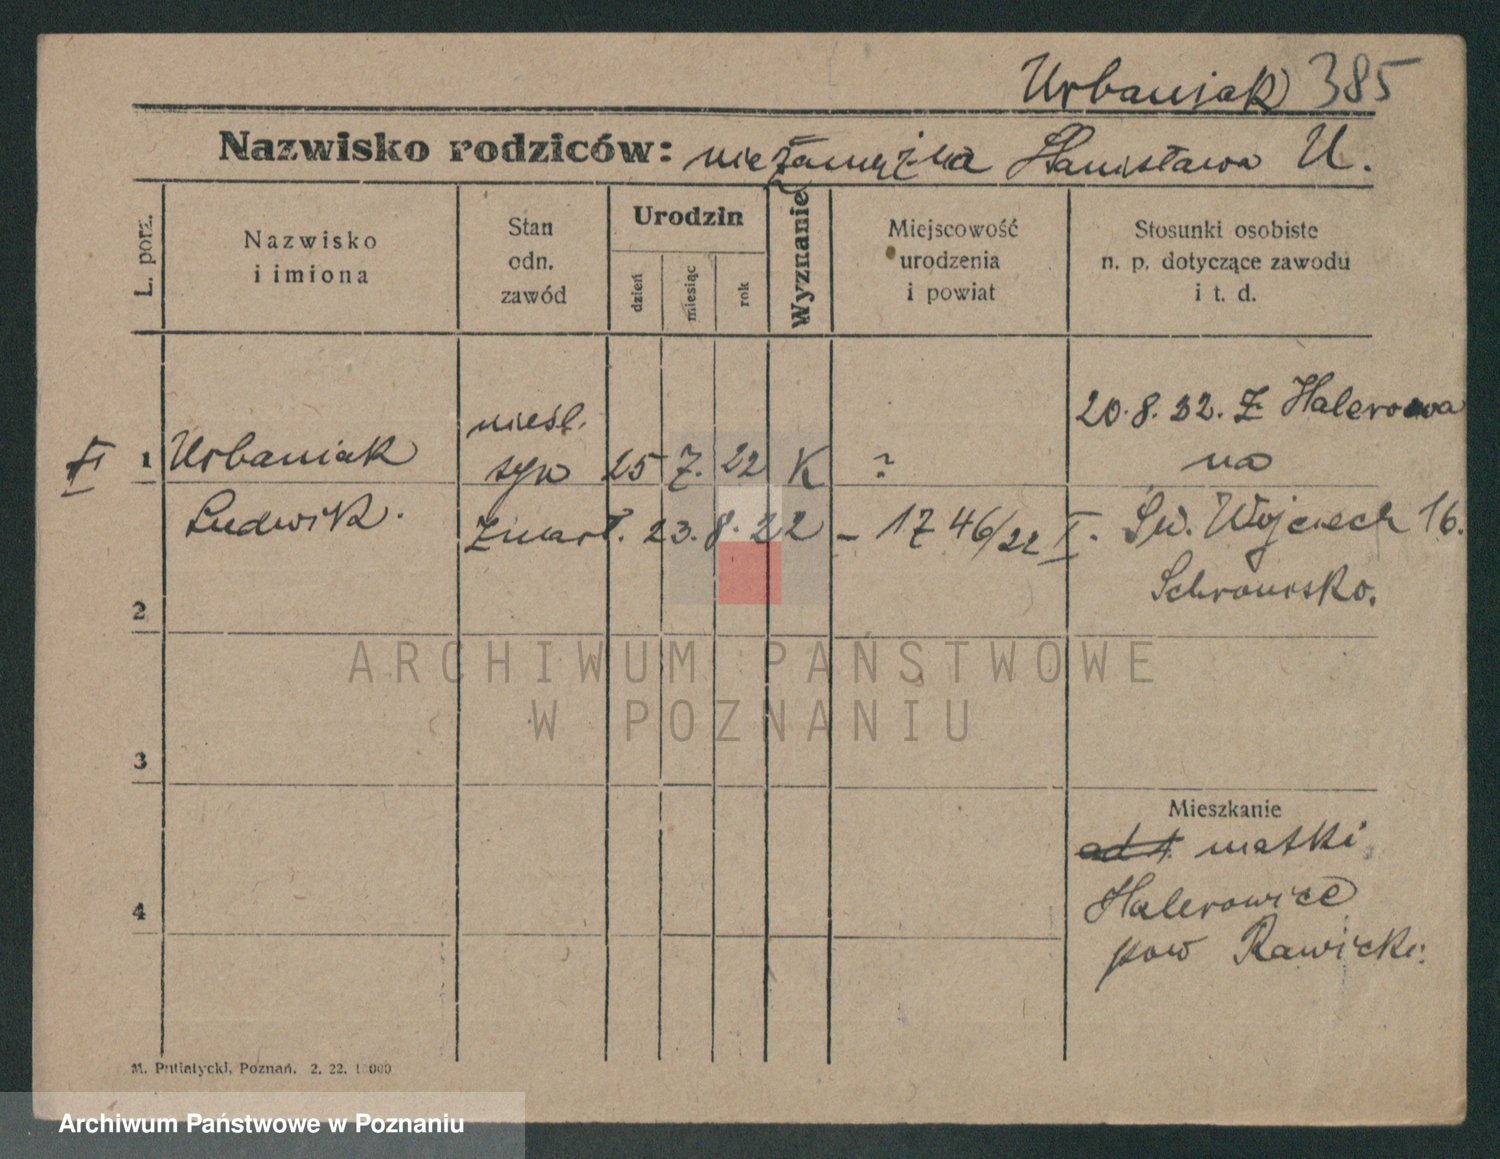 Urbaniak 385
Nazwisko rodziców: niezamężna Stanisława U.
L. porz.
Nazwisko
i imiona
Stan
odn.
zawód
Urodzin
dzień
miesiąc
rok
Wyznanie
Miejscowość
urodzenia
i powiat
Stosunki osobiste
n. p. dotyczące zawodu
i t. d.
1 Urbaniak nieśl. syn 25 7. 22 K ?
20.8.22. Z Halerowa
na
Ludwik. Zmarł. 23. 8. 22 – 1746/22 I. Św. Wojciech 16.
Schronisko.
2
3
4
Mieszkanie
matki
Halerowice
pow Rawicki.
M. Putiatycki, Poznań. 2. 22. 1 000
ARCHIWUM PAŃSTWOWE
W POZNANIU
Archiwum Państwowe w Poznaniu